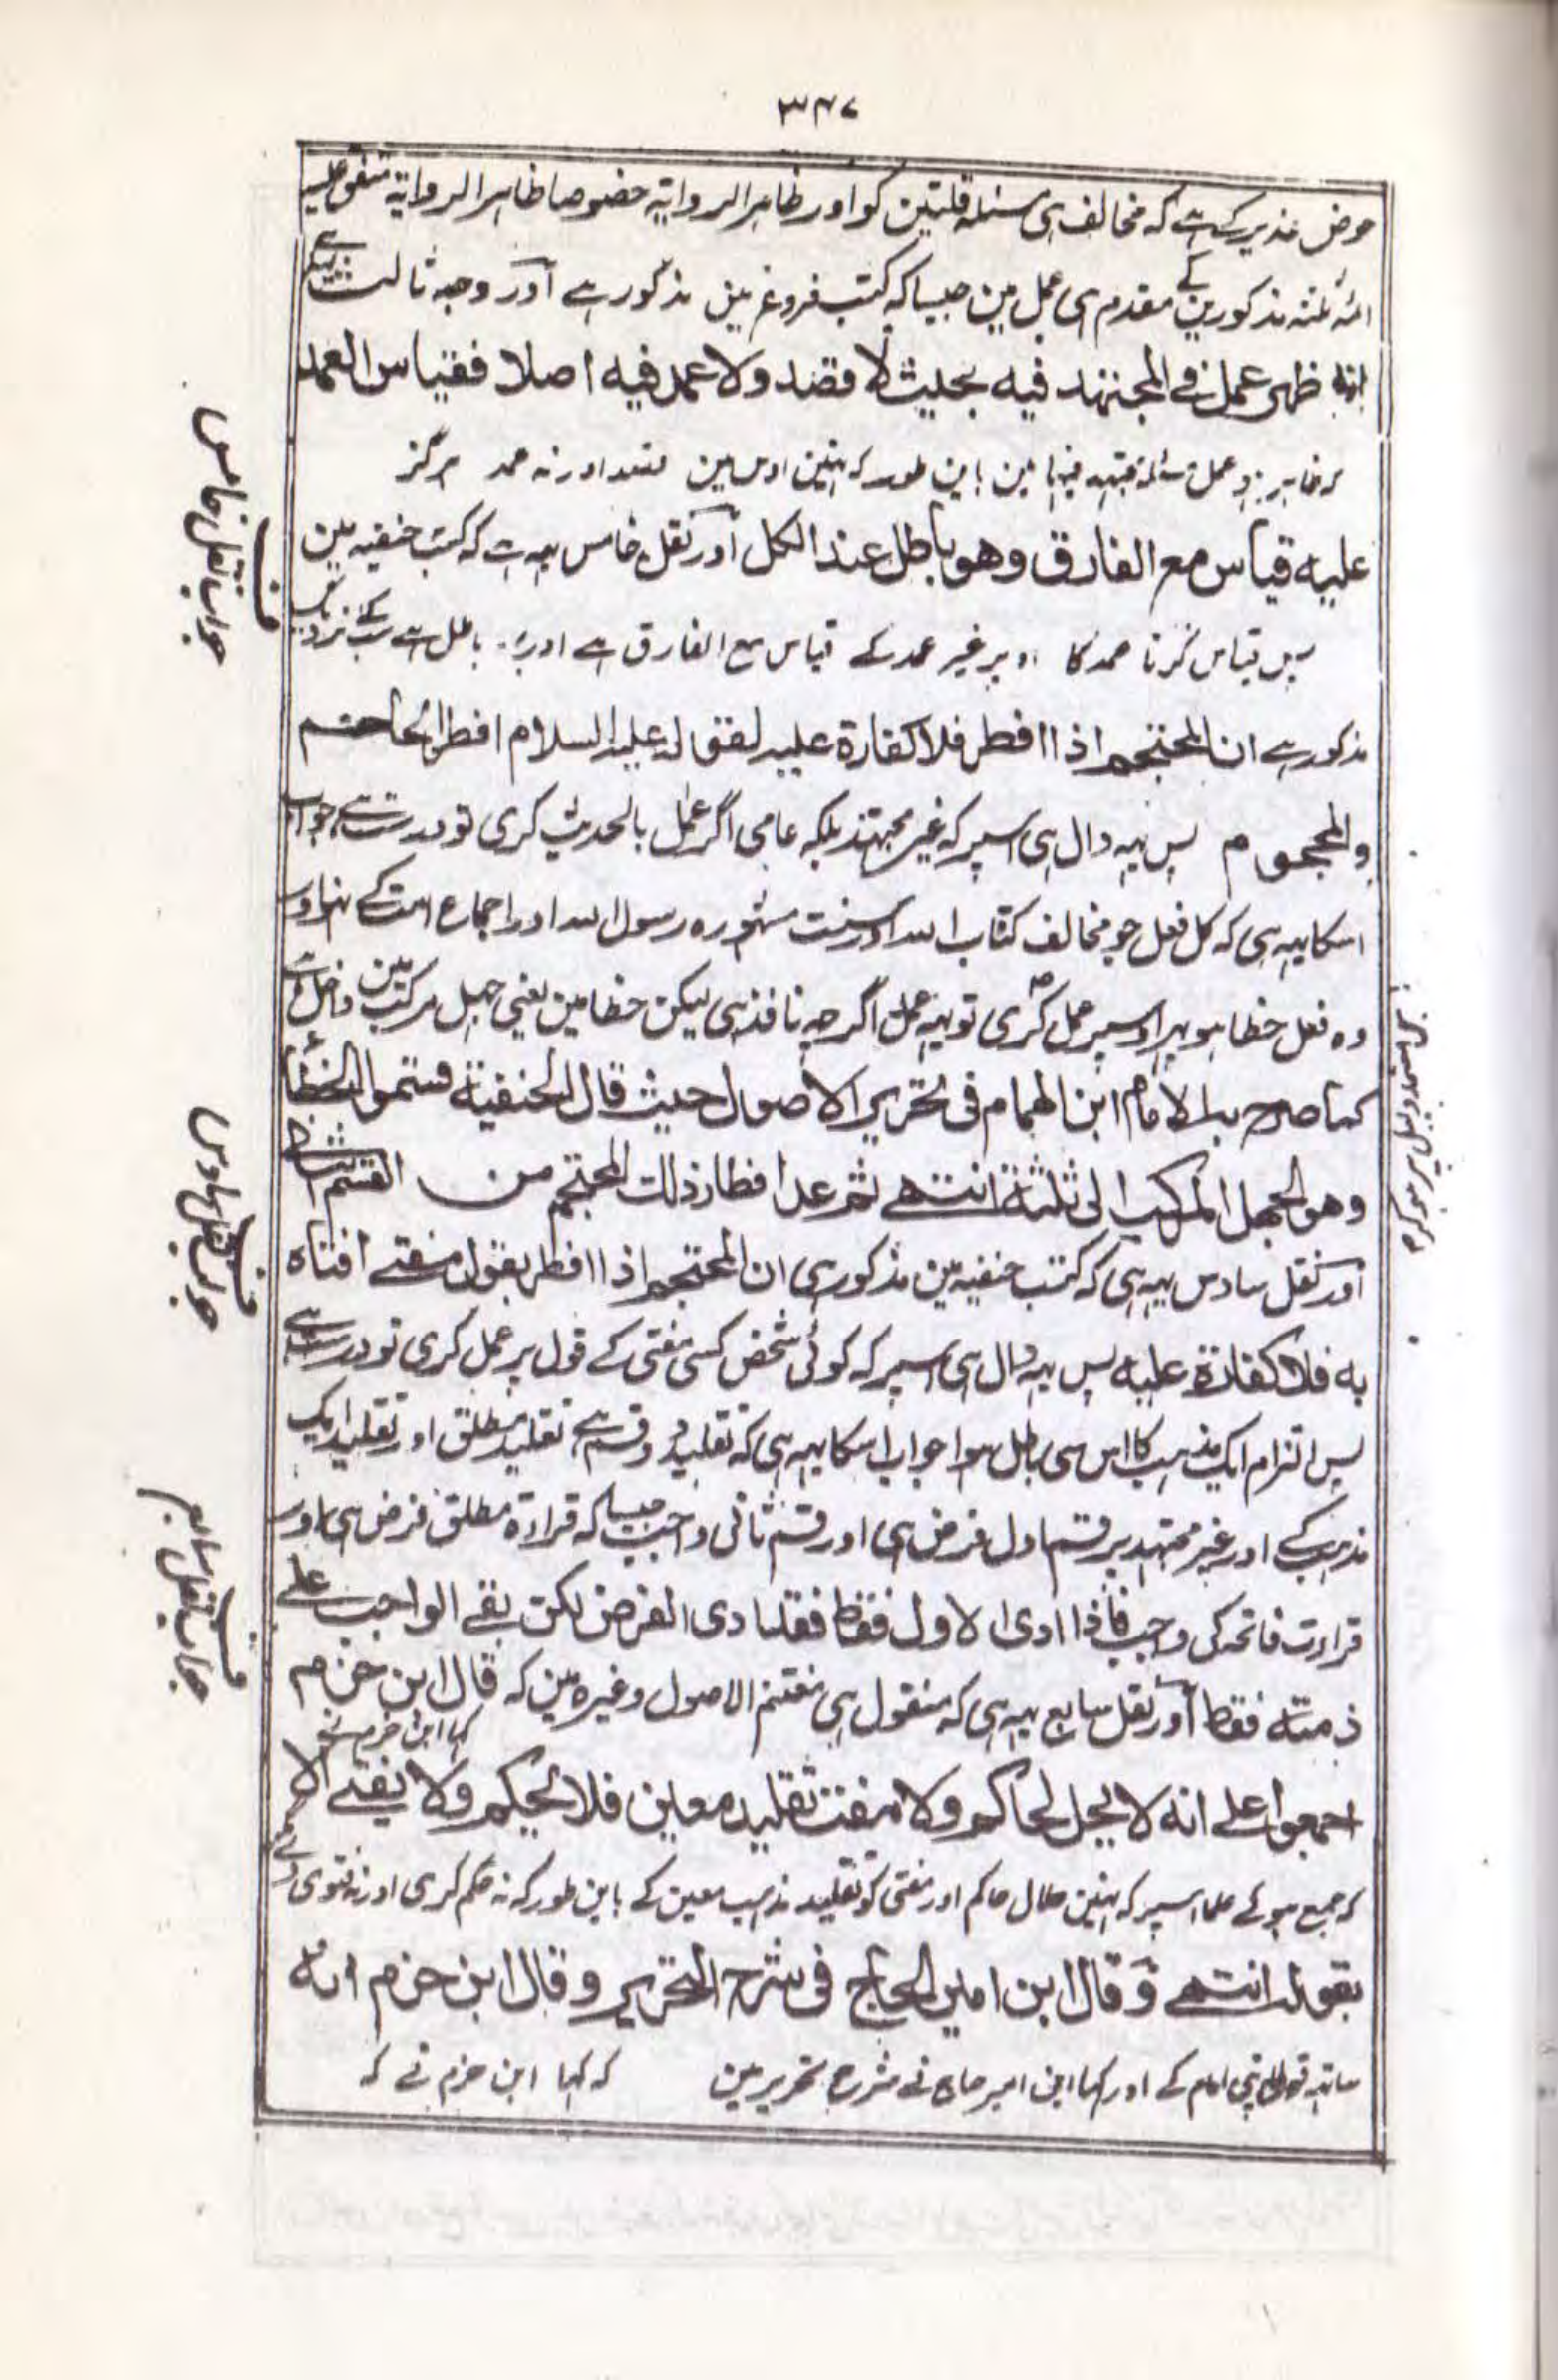 ۳۴۷
حوض غدیر کے ہے کہ مخالف ہی مسئلہ قلتین کو اور ظاہر الروایۃ خصوصا ظاہر الروایۃ متفق علیہ
ائمہ ثلثہ مذکورین کے مقدم ہی عمل مین جیسا کہ کتب فروع مین مذکور ہے اور وجہ ثالث یہ ہے
انہ ظهر عمل فی المجتهد فيه بحيث لا قصد ولا عمد فيه اصلا فقياس العمد
کہ ظاہر ہو عمل مسئلہ مجتہد فیہا مین باین طور کہ نہین اوس مین قصد اور نہ عمد ہرگز
عليه قياس مع الفارق وهو باطل عند الكل اور نقل خامس یہہ ہے کہ کتب حنفیہ مین
پس قیاس کرنا عمد کا اوپر غیر عمد کے قیاس مع الفارق ہے اور یہ باطل ہے سب کے نزدیک
مذکور ہے ان المحتجم اذا افطر فلا كفارة عليه لقوله عليه السلام افطر الحاجم
والمحجوم پس یہہ دال ہی اسپر کہ غیر مجتہد بلکہ عامی اگر عمل بالحدیث کری تو درست ہے جواب
اسکا یہہ ہی کہ کل فعل جو مخالف کتاب اللہ اور سنت مشہورہ رسول اللہ اور اجماع امت کے نہو اور
وہ فعل خطا ہو پہر اوسپر عمل کری تو یہہ عمل اگرچہ نافذ ہی لیکن خطا مین یعنی جہل مرکب مین داخل ہے
كما صرح به الامام ابن الهمام فی تحرير الاصول حيث قال الحنفية قسموا الخطأ
وهو الجهل المركب الى ثلثة انتهى ثم عد افطار ذلك المحتجم من القسم الثالث
اور نقل سادس یہہ ہی کہ کتب حنفیہ مین مذکور ہی ان المحتجم اذا افطر بقول مفتی افتاه
به فلا كفارة عليه پس یہہ دال ہی اسپر کہ کوئی شخص کسی مفتی کے قول پر عمل کری تو درست ہے
پس التزام ایک مذہب کا اس سی باطل ہوا جواب اسکا یہہ ہی کہ تقلید دو قسم ہے تقلید مطلق اور تقلید ایک
مذہب کے اور غیر مجتہد پر قسم اول فرض ہی اور قسم ثانی واجب جیسا کہ قراءۃ مطلق فرض ہی اور
قراءت فاتحہ کی واجب فاذا ادى الاول فقط فقد ادى الفرض لكن بقى الواجب على
ذمته فقط اور نقل سابع یہہ ہی کہ منقول ہی مغتنم الاصول وغیرہ مین کہ قال ابن حزم
کہا ابن حزم نے
اجمعوا على انه لا يحل لحاكم ولا مفت تقليد معين فلا يحكم ولا يفتی الا
کہ جمع ہوئے علما اسپر کہ نہین حلال حاکم اور مفتی کو تقلید مذہب معین کے باین طور کہ نہ حکم کری اور نہ فتوی دے
بقوله انتهى وقال ابن امير الحاج فی شرح التحرير وقال ابن حزم انه
ساتھ قول اپنی امام کے اور کہا ابن امیر حاج نے شرح تحریر مین کہ کہا ابن حزم نے کہ
جواب نقل خامس
جواب نقل سادس
جواب نقل سابع